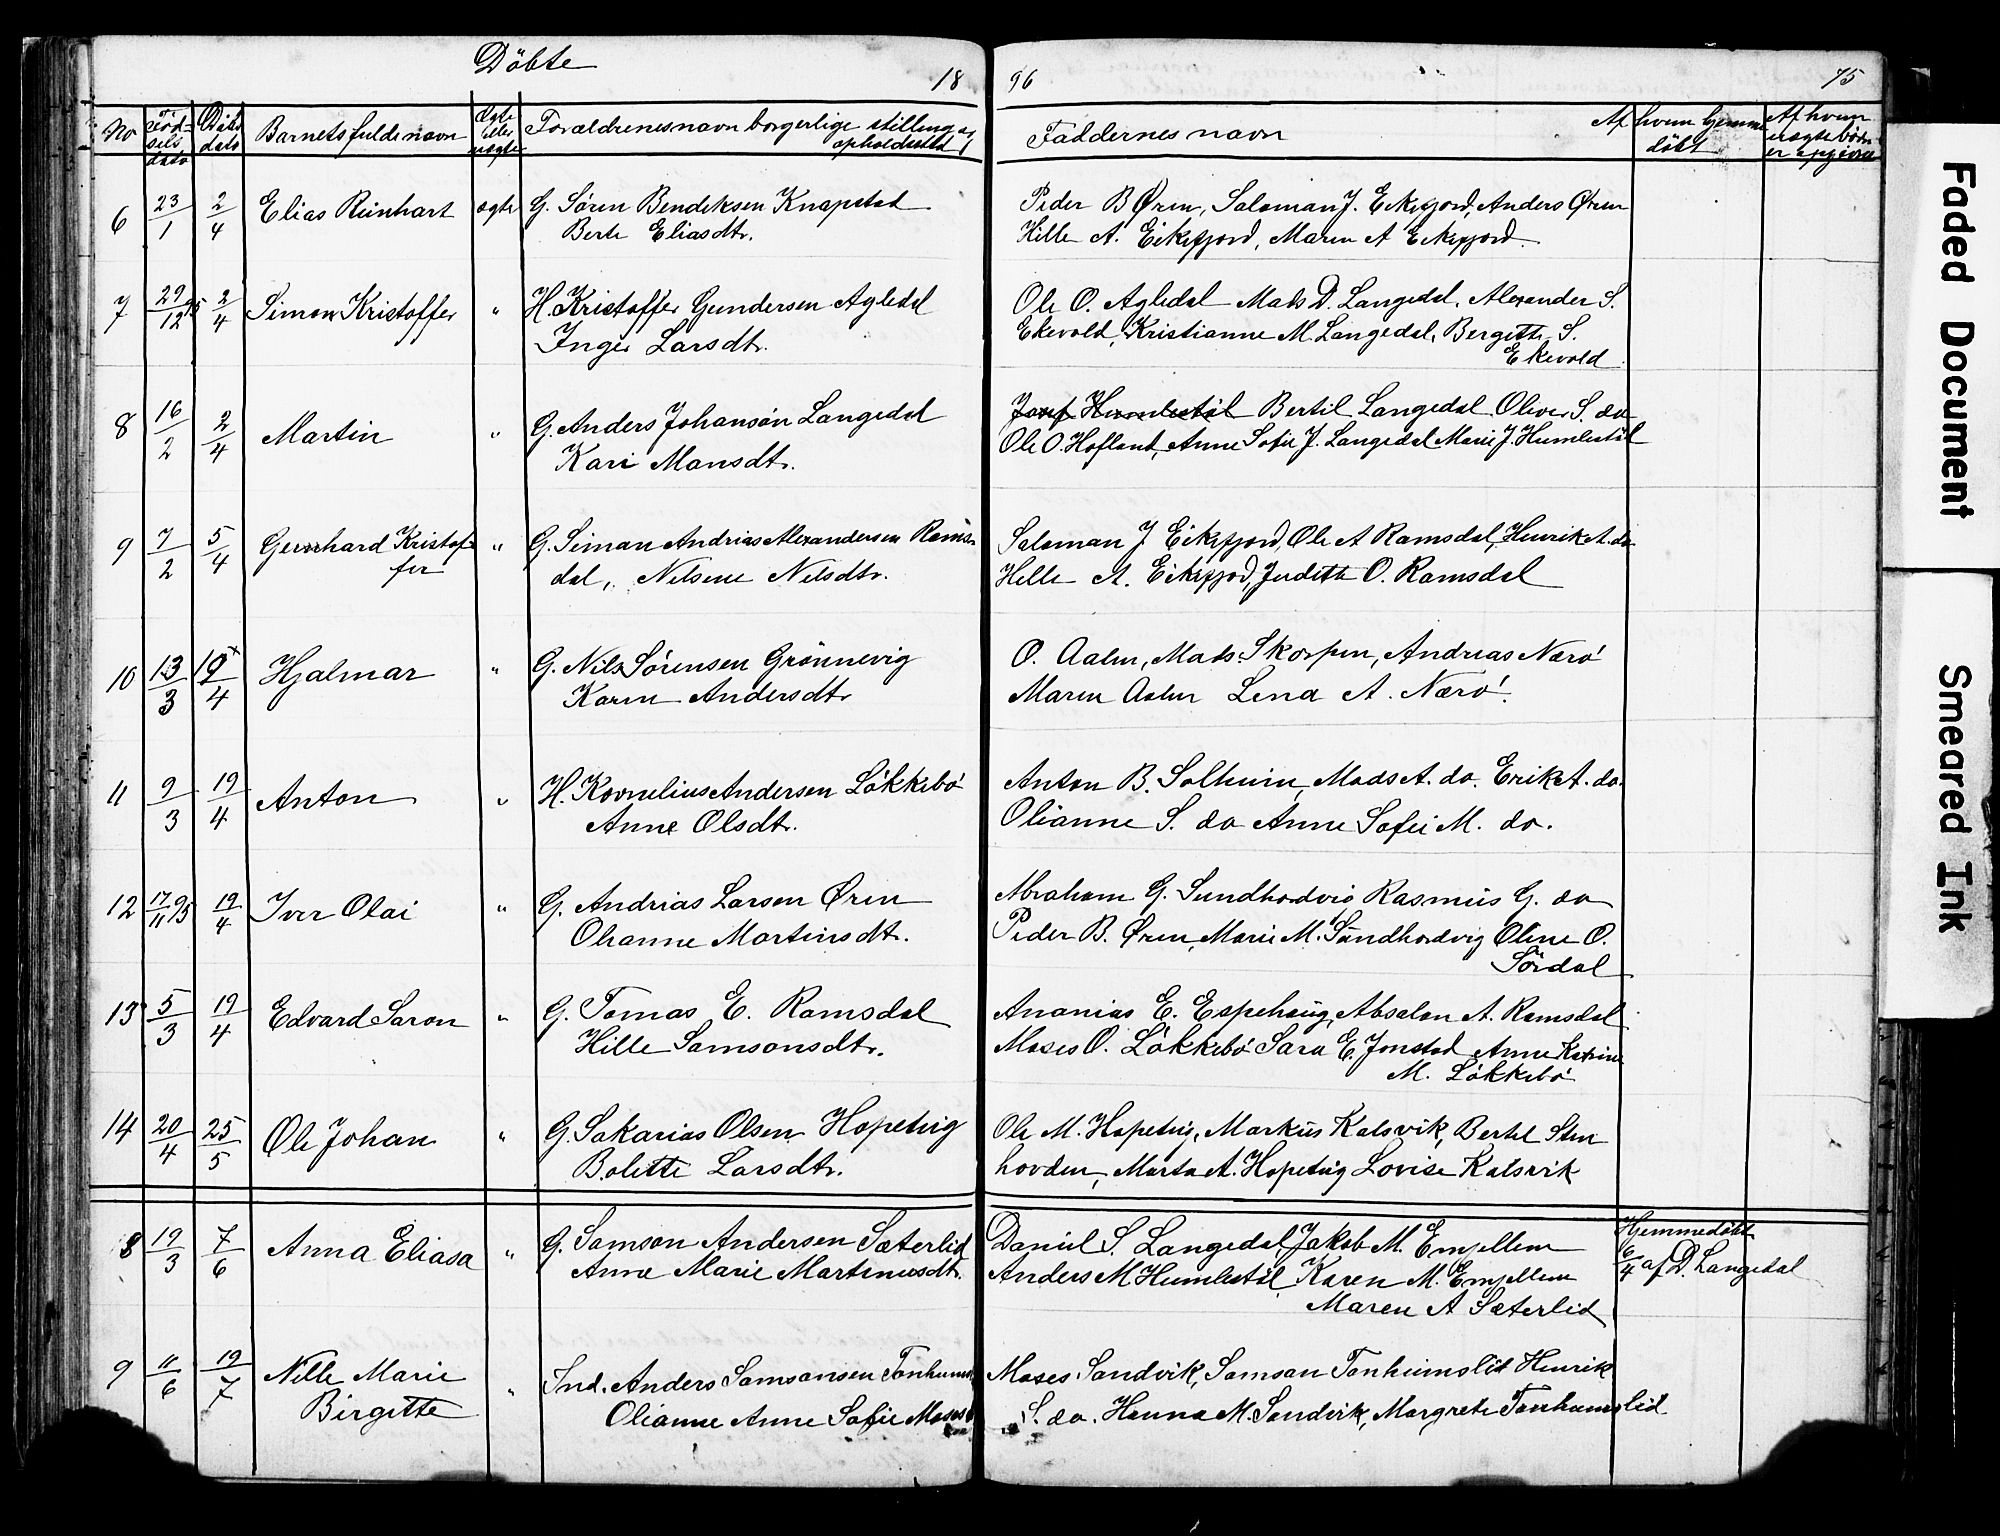 Döbte
18 96 75
No Födselsdato Döbtdato Barnets fulde navn Ægte eller uægte Forældrenes navn borgerlige stilling og opholdssted Faddernes navn Af hvem hjemmedöbt Af hvem uægte börn er opgivne
6 23/1 2/4 Elias Reinhart ægte G. Sören Bendiksen Knapstad Peder B Øren, Salaman J. Eikefjord, Anders Øren
Berte Eliasdtr. Hille A. Eikefjord, Maren A Eikefjord
7 29/12 95 2/4 Simon Kristoffer " H. Kristoffer Gundersen Agledal Ole O. Agledal Mads D. Langedal, Alexander S.
Inger Larsdtr. Ekevold, Kristianne M. Langedal, Bergitte S.
Ekevold
8 16/2 2/4 Martin " G. Anders Johanson Langedal Josef Humlestöl Bertil Langedal Oliver S. do
Kari Monsdtr. Ole O. Hofland, Anne Sofie J. Langedal Marie J. Humlestöl
9 7/2 5/4 Gerhard Kristof- " G. Siman Andrias Alexandersen Rams- Salaman J Eikefjord, Ole A Ramsdal, Henrik A. do
fer dal, Nilsine Nilsdtr. Helle A. Eikefjord, Judith O. Ramsdal
10 13/3 19/4 Hjalmar " G. Nils Sörensen Grönnevig O. Aalen, Mads Skorpen, Andreas Nærö
Karen Andersdtr Maren Aalen Lena A. Nærö.
11 9/3 19/4 Anton " H. Kornelius Andersen Lökkebö Anton B. Solheim, Mads A. do. Erik A. do.
Anne Olsdtr. Olianne S. do Anne Sofie M. do.
12 17/11 95 19/4 Iver Olai " G. Andrias Larsen Øren Abraham G. Sundhordvig Rasmus G. do
Olianne Martinsdtr. Peder B. Øren, Marie M. Sundhordvig Oline O.
Sördal
13 5/3 19/4 Edvard Saron " G. Tomas E. Ramsdal Ananias E. Espehaug, Absalon A. Ramsdal
Hille Samsonsdtr. Moses O. Lökkebö Sara E. Jonstad Anne Katrine
M. Lökkebö
14 20/4 25/5 Ole Johan " G. Sakarias Olsen Hopeteig Ole M. Hopeteig, Markus Kalsvik, Bertel Sten
Bolette Larsdtr. hovden, Marta A. Hopeteig Lovise Kalsvik
8 19/3 7/6 Anna Eliasa " G. Samson Andersen Sæterlid Daniel S. Langedal, Jakob M. Emjellem Hjemmedöbt
Anne Marie Martinusdtr. Anders M Humlestöl Karen M. Emjellem 6/4 af D. Langedal
Maren A Sæterlid
9 11/6 19/7 Nille Marie " Ind. Anders Samsonsen Tonheims Moses Sandvik, Samson Tonheimslid Henrik
Birgitte Olianne Anne Sofie Moses S. do. Hanna M. Sandvik, Margrete Tonheimslid
Faded Document
Smeared Ink